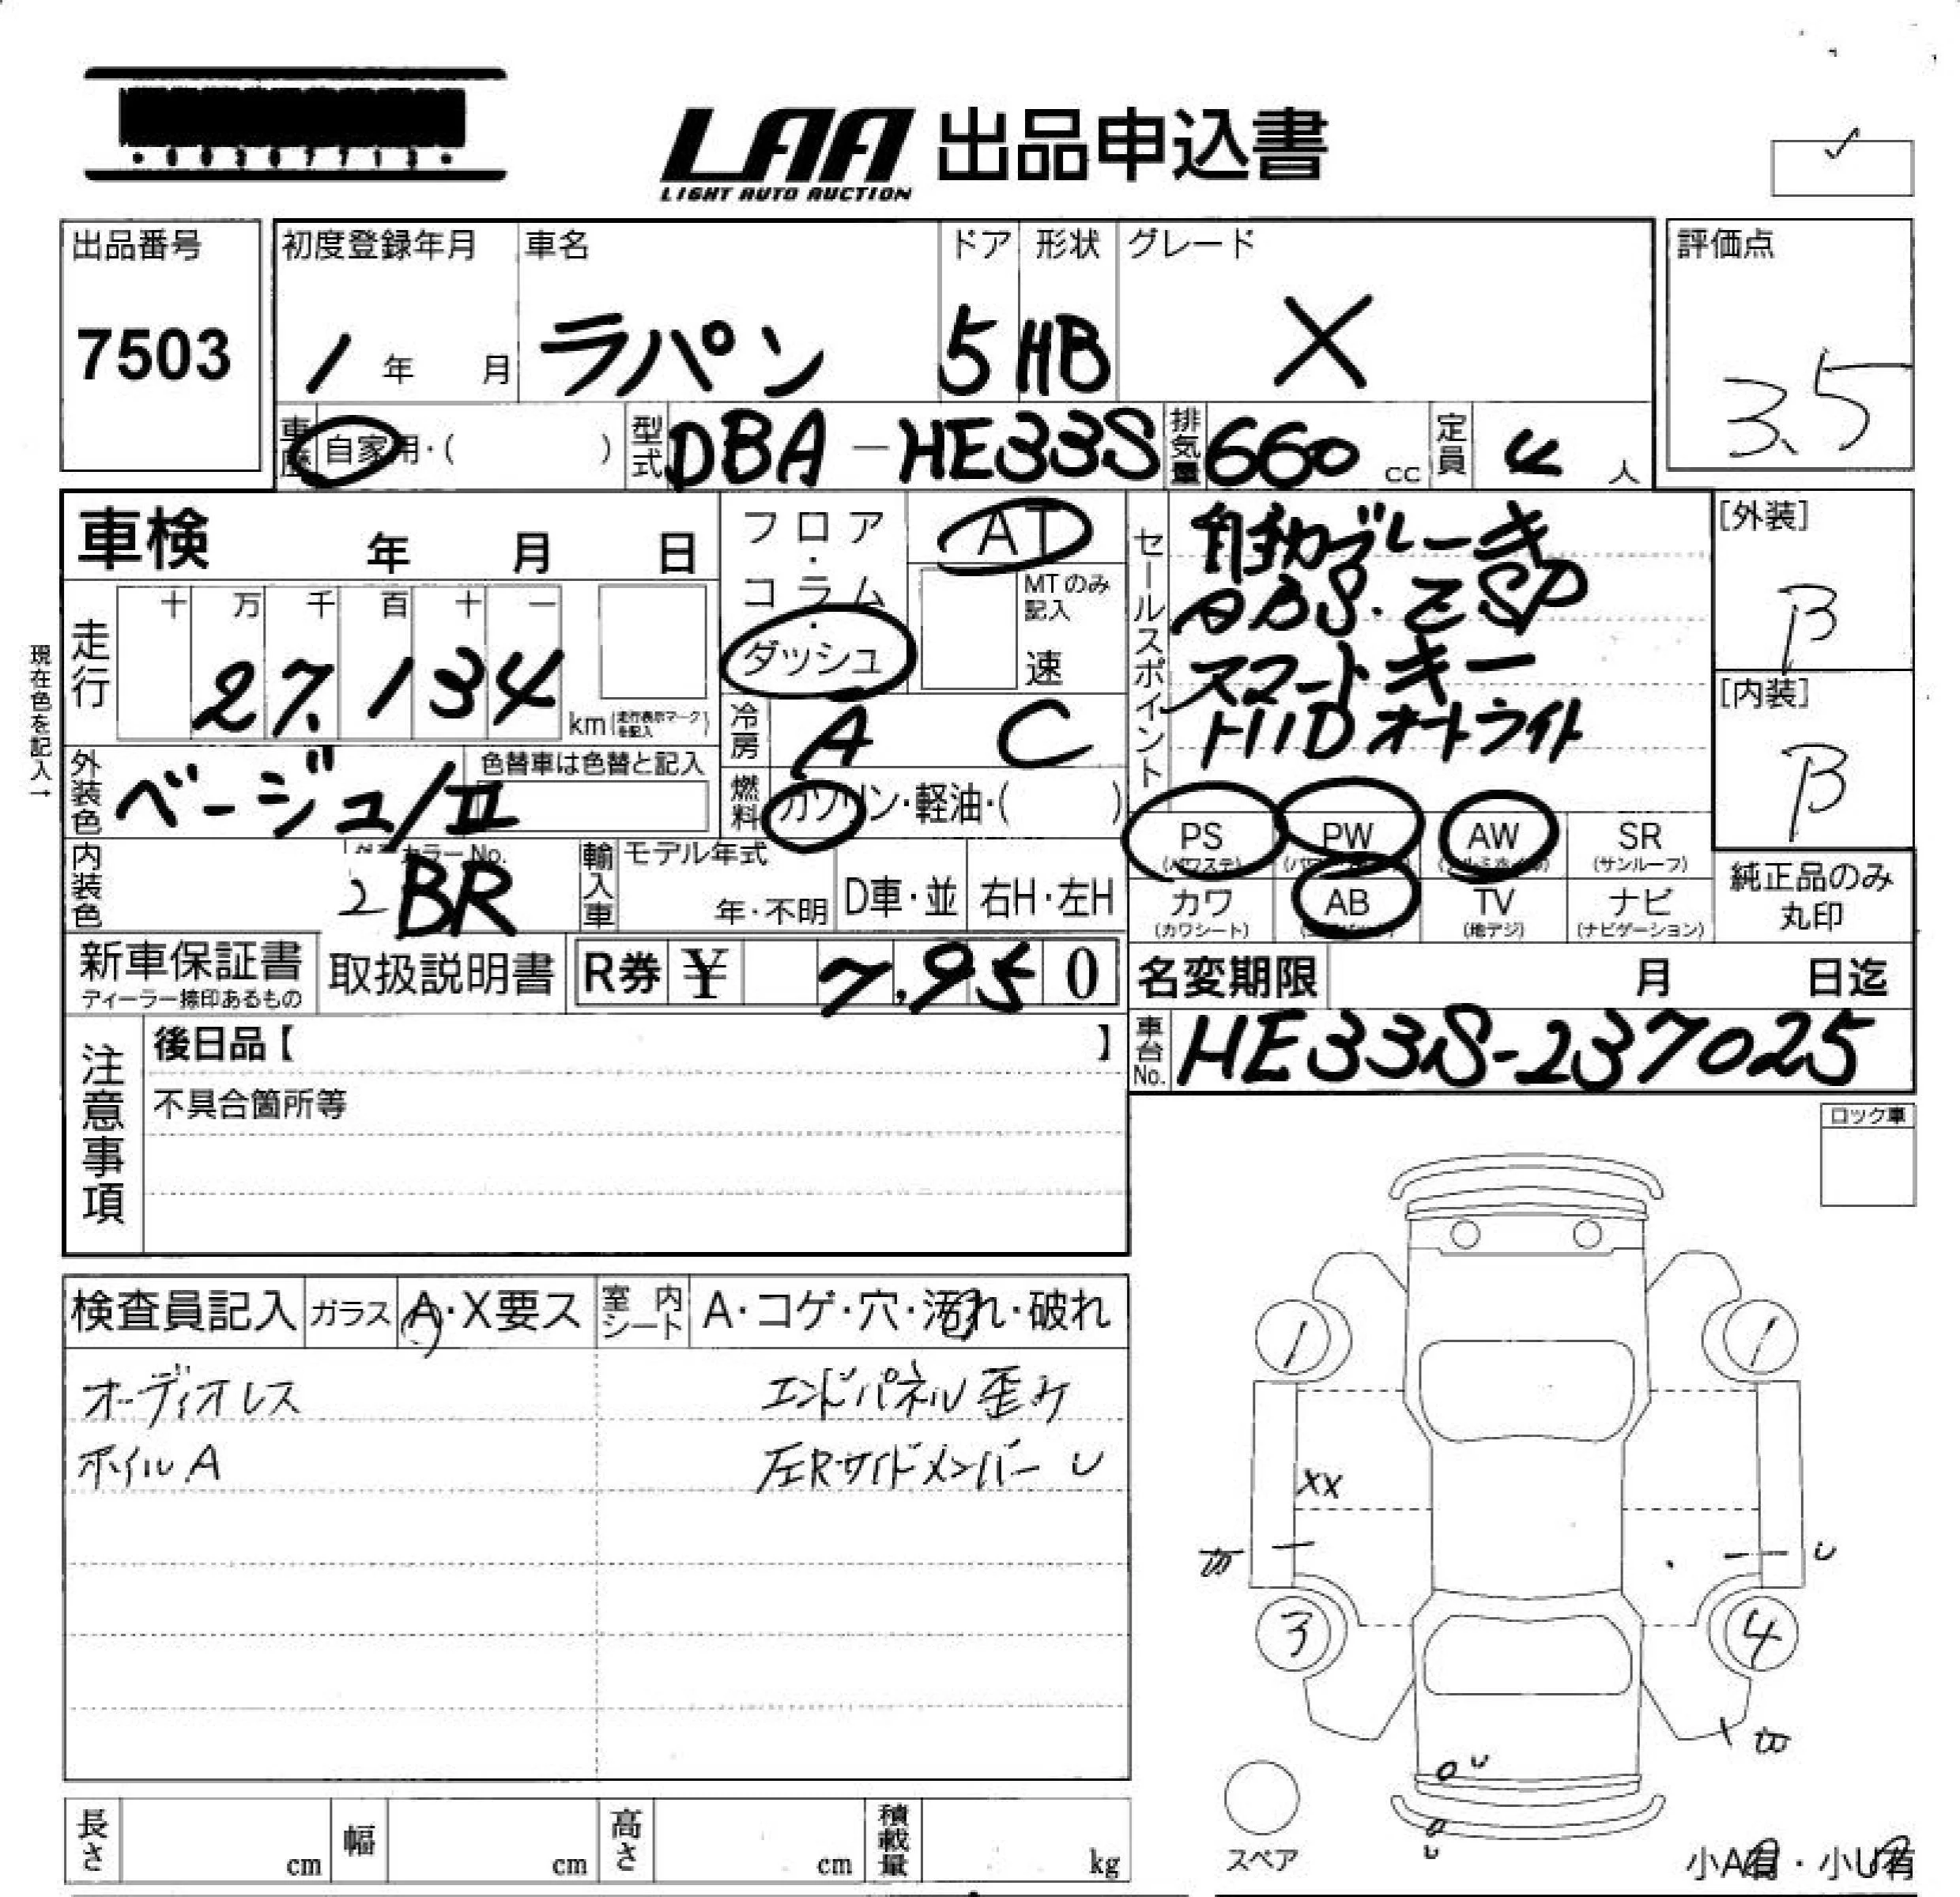 ・00307713・
LAA 出品申込書
LIGHT AUTO AUCTION
出品番号
7503
初度登録年月
1 年 月
車名
ラパン
ドア
5
形状
HB
グレード
X
評価点
3.5
車歴
自家用・( )
型式
DBA-HE33S
排気量
660 cc
定員
4 人
車検 年 月 日
フロア・コラム・ダッシュ
AT
MTのみ記入
速
セールスポイント
自動ブレーキ
ABS. ESP
スマートキー
HID オートライト
[外装]
B
[内装]
B
現在色を記入→
走行
十 万 千 百 十 一
27,134
km(走行表示マークを記入)
冷房
A C
外装色
ベージュ/II
色替車は色替と記入
燃料
ガソリン・軽油・( )
PS
(パワステ)
PW
AW
SR
(サンルーフ)
カワ
(カワシート)
AB
TV
(地デジ)
ナビ
(ナビゲーション)
純正品のみ
丸印
内装色
カラーNo.
BR
輸入車
モデル年式
年・不明
D車・並
右H・左H
新車保証書
ディーラー捺印あるもの
取扱説明書
R券 ¥ 7,950
名変期限 月 日迄
車台No.
HE33S-237025
注意事項
後日品【 】
不具合箇所等
ロック車
検査員記入
ガラス
A・X要ス
室内シート
A・コゲ・穴・汚れ・破れ
オーディオレス
エンドパネル歪み
ホイルA
左Rサイドメンバー U
1
1
XX
U
3
4
U
U
スペア
小A有・小U有
長さ cm
幅 cm
高さ cm
積載量 kg